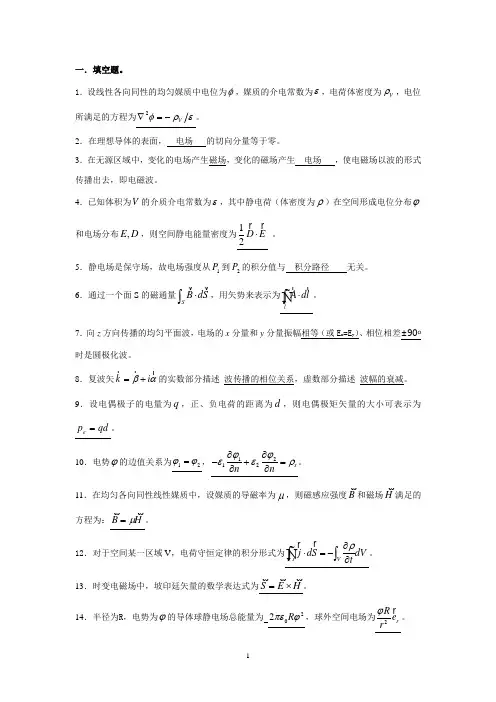 一．填空题。
1．设线性各向同性的均匀媒质中电位为ϕ，媒质的介电常数为ε，电荷体密度为ρ_V，电位
所满足的方程为∇²ϕ = −ρ_V/ε。
2．在理想导体的表面， 电场 的切向分量等于零。
3．在无源区域中，变化的电场产生磁场，变化的磁场产生 电场 ，使电磁场以波的形式
传播出去，即电磁波。
4．已知体积为V的介质介电常数为ε，其中静电荷（体密度为ρ）在空间形成电位分布φ
和电场分布E, D，则空间静电能量密度为 1/2 D · E 。
5．静电场是保守场，故电场强度从P₁到P₂的积分值与 积分路径 无关。
6．通过一个面 S 的磁通量∫_S B · dS，用矢势来表示为 A · dl 。
7．向 z 方向传播的均匀平面波，电场的 x 分量和 y 分量振幅相等（或 Eₓ=E_y）、相位相差±90°
时是圆极化波。
8．复波矢 k = β + iα 的实数部分描述 波传播的相位关系，虚数部分描述 波幅的衰减。
9．设电偶极子的电量为q，正、负电荷的距离为d，则电偶极矩矢量的大小可表示为
p_e = qd。
10．电势φ的边值关系为φ₁ = φ₂，−ε₁ ∂φ₁/∂n + ε₂ ∂φ₂/∂n = ρ_s。
11．在均匀各向同性线性媒质中，设媒质的导磁率为μ，则磁感应强度B和磁场H满足的
方程为：B = μH 。
12．对于空间某一区域 V，电荷守恒定律的积分形式为 j · dS = −∫_V ∂ρ/∂t dV。
13．时变电磁场中，坡印延矢量的数学表达式为 S = E × H。
14．半径为R，电势为φ的导体球静电场总能量为 2πε₀Rφ²，球外空间电场为 φR/r² e_r。
1